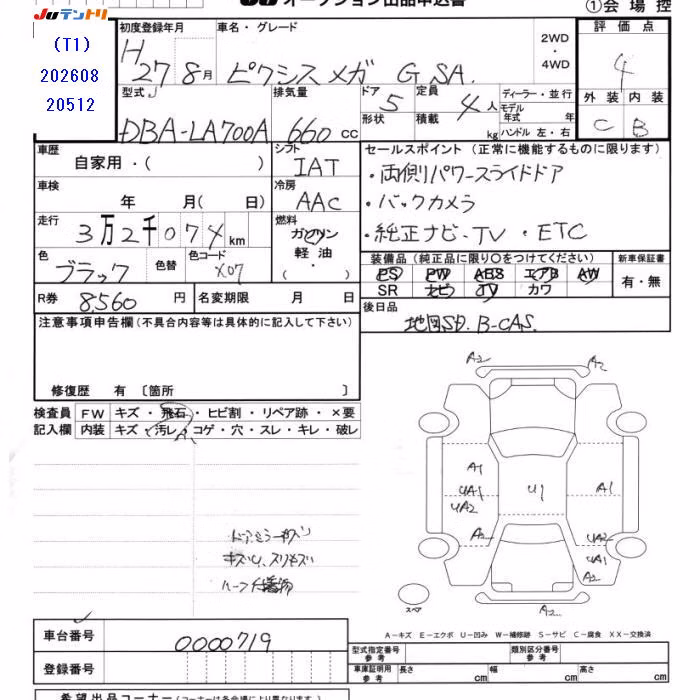 JUテントリ オークション出品申込書 ①会場控
(T1)
202608
20512
初度登録年月 車名・グレード
H27 8月 ピクシスメガ G SA.
2WD
・
4WD
評価点
4
外装 内装
C B
型式 排気量 ドア 定員 ディーラー・並行
DBA-LA700A 660cc 5 4人
形状 積載 kg
モデル年式 年
ハンドル 左・右
車歴
自家用・( )
シフト
IAT
車検
年 月( 日)
冷房
AAC
走行
3万2千074km
燃料
ガソリン
軽油
( ・ )
色 色替 色コード
ブラック X07
R券 8,560円 名変期限 月 日
セールスポイント (正常に機能するものに限ります)
・両側パワースライドドア
・バックカメラ
・純正ナビ・TV ・ETC
装備品 (純正品に限り○をつけてください) 新車保証書
PS PW ABS エアB AW 有・無
SR ナビ TV カワ
後日品
地図SD. B-CAS.
注意事項申告欄 (不具合内容等は具体的に記入して下さい)
修復歴 有 〔箇所 〕
検査員 FW キズ・飛石・ヒビ割・リペア跡・×要
記入欄 内装 キズ・汚レ・コゲ・穴・スレ・キレ・破レ
A2 A2
A1
UA1 U1 A1
UA2
A2 UA2
UA1
A2
スペア A2
A−キズ E−エクボ U−凹み W−補修跡 S−サビ C−腐食 XX−交換済
車台番号 0000719
登録番号
型式指定番号 参考 類別区分番号 参考
車庫証明用 参考 長さ cm 幅 cm 高さ cm
希望出品コーナー (コーナーは各会場により異なります)